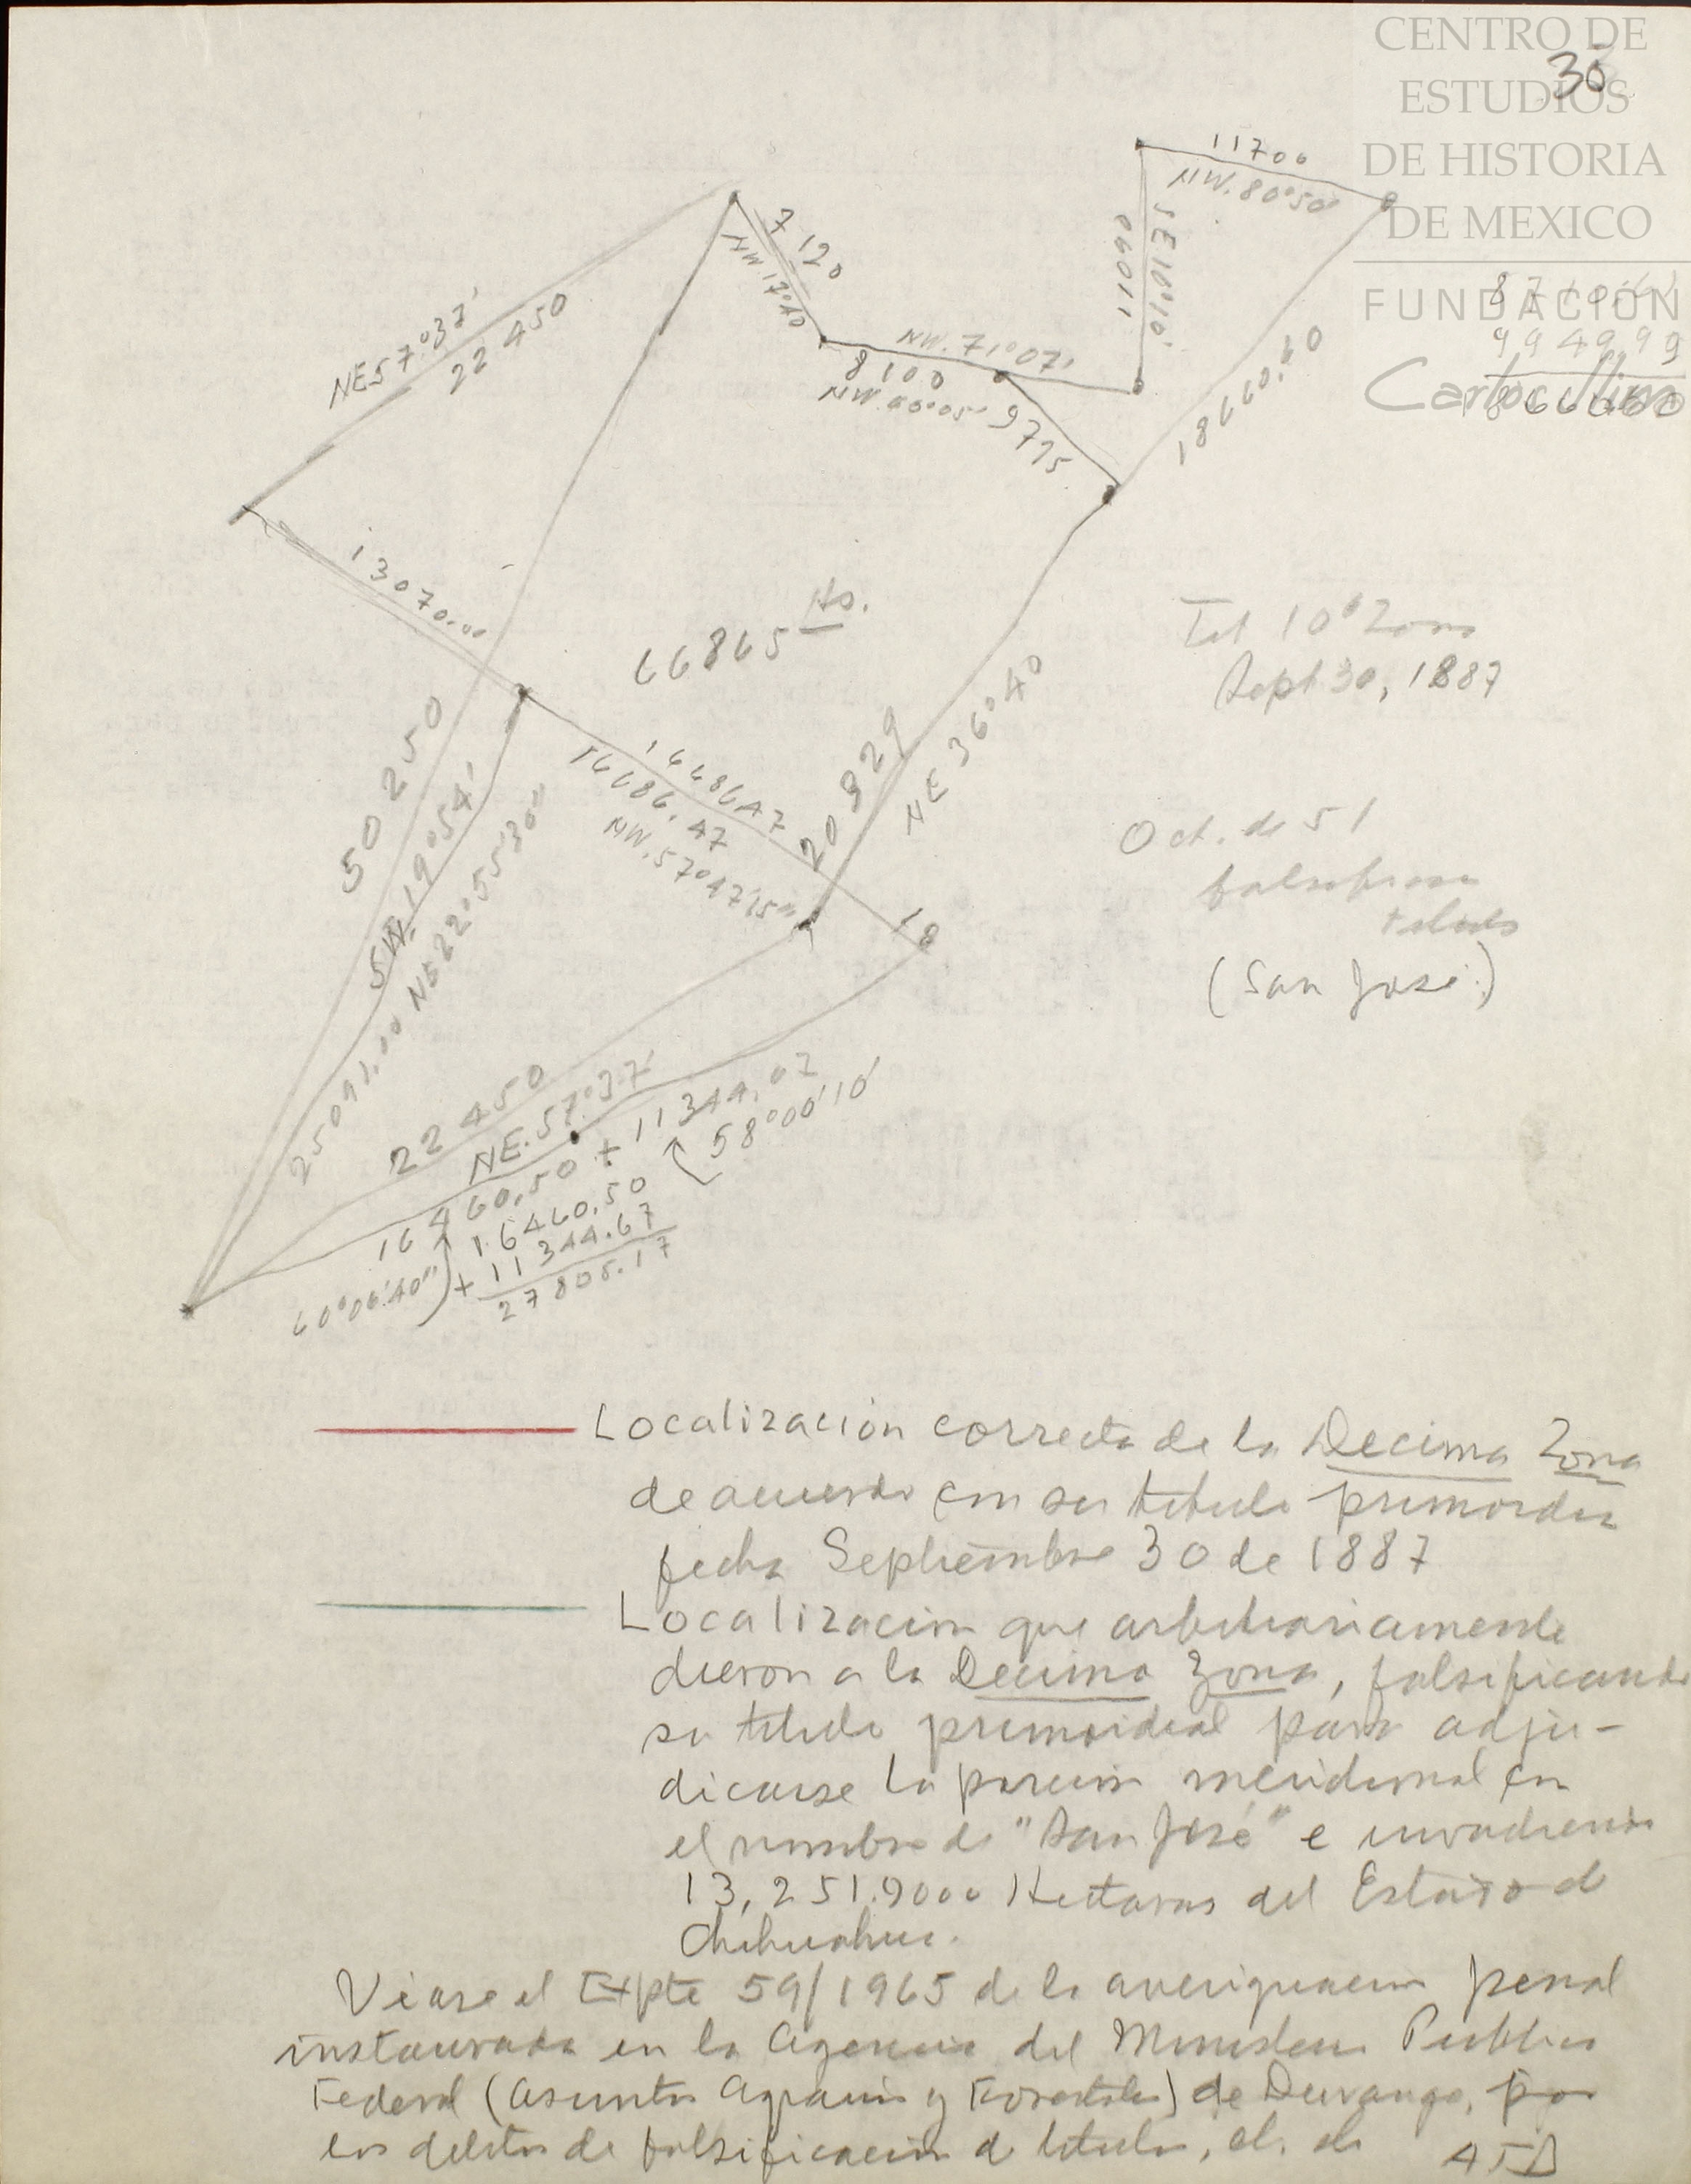 CENTRO DE
ESTUDIOS
DE HISTORIA
DE MEXICO
FUNDACIÓN
Carlos Slim
30
11700
NW. 80°50'
SE 10°10'
11090
7120
NW 17°40
NW. 71°07'
8100
NW. 60°05'
9775
18660.60
8710.61
9949.99
18660.60
NE 57°37'
22450
13070.00
66865 Hs.
Tit 10a Zona
Sept 30, 1887
50250
SW. 19°54'
25091.00 NE 22°55'30"
16686.47
16686.47
NW. 57°47'15"
20929
NE 36°40
18
Oct. de 51
(San José)
22450
NE. 57°37'
16460.50 + 11344.67
58°00'10"
60°06'40"
16460.50
+ 11344.67
27805.17
Localización correcta de la Decima Zona
de acuerdo con su titulo primordial
fecha Septiembre 30 de 1887
Localización que arbitrariamente
dieron a la Decima Zona, falsificando
su titulo primordial para adju-
dicarse la porcion meridional con
el nombre de "San José" e invadiendo
13,251.9000 Hectaras del Estado de
Chihuahua.
Véase el Expte 59/1965 de la averiguacion penal
instaurada en la Agencia del Ministerio Publico
Federal (Asuntos Agrarios y Forestales) de Durango, por
los delitos de falsificación de titulos, et. et.